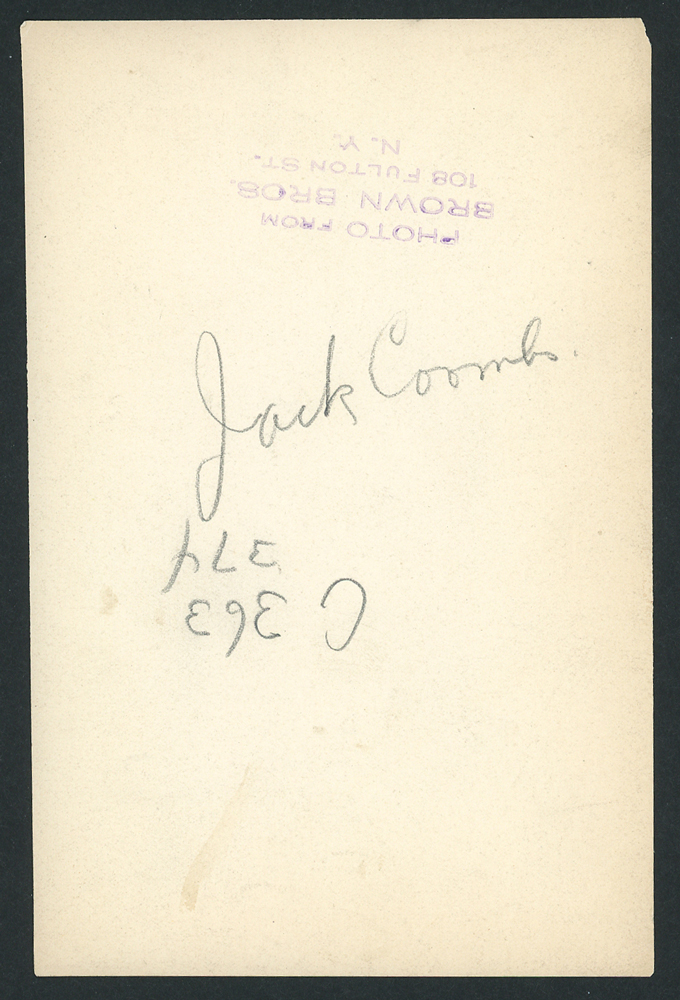 PHOTO FROM
BROWN BROS.
108 FULTON ST.
N. Y.
Jack Coombs.
C 363
374